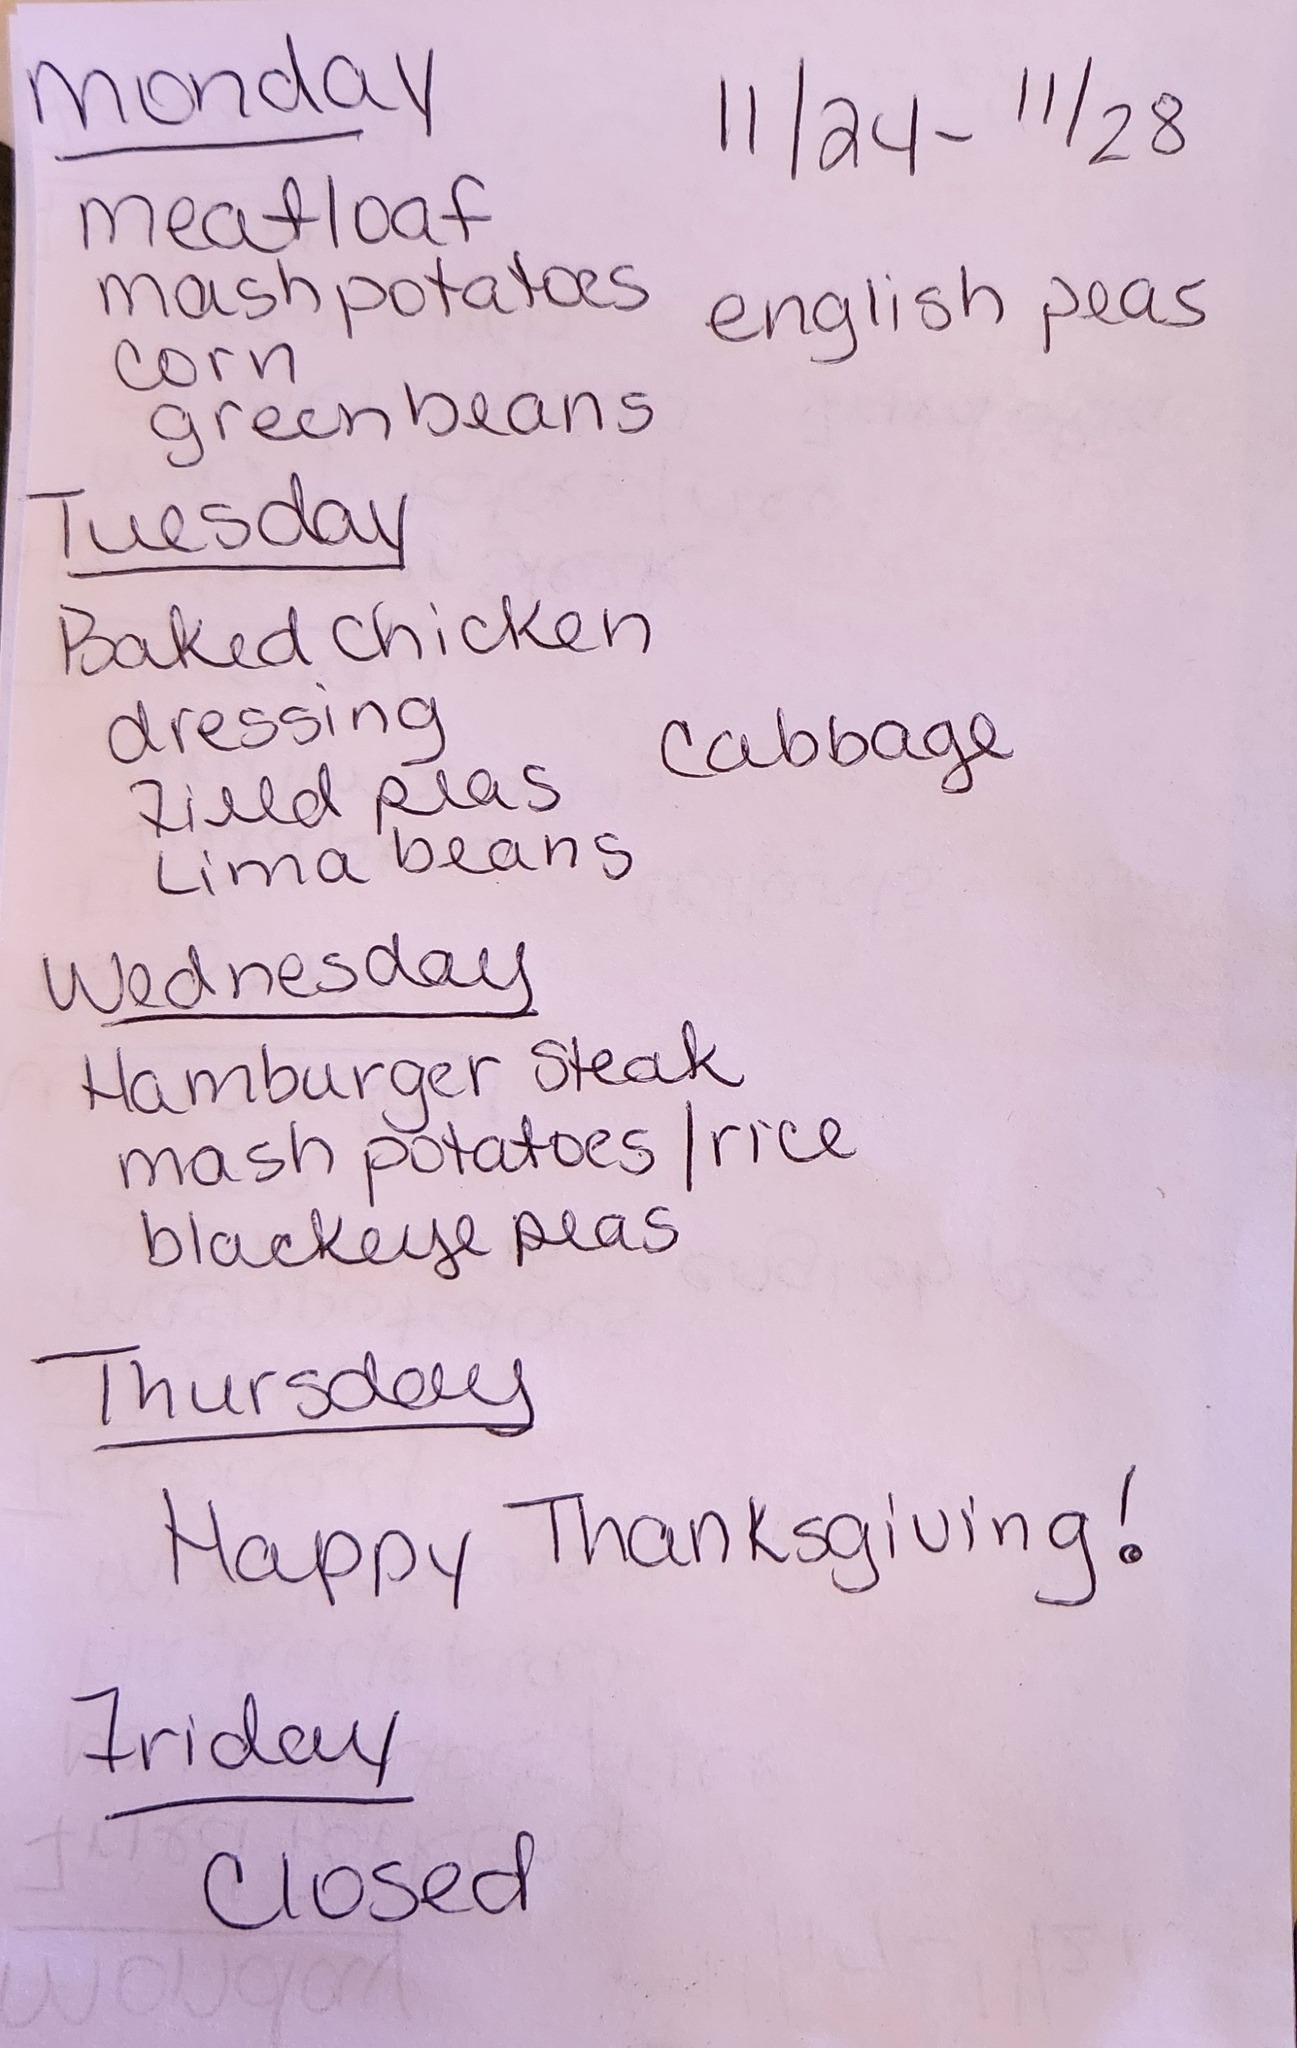 Monday
11/24 - 11/28
meatloaf
mash potatoes english peas
corn
green beans
Tuesday
Baked chicken
dressing cabbage
Field peas
Lima beans
Wednesday
Hamburger Steak
mash potatoes / rice
blackeye peas
Thursday
Happy Thanksgiving!
Friday
Closed